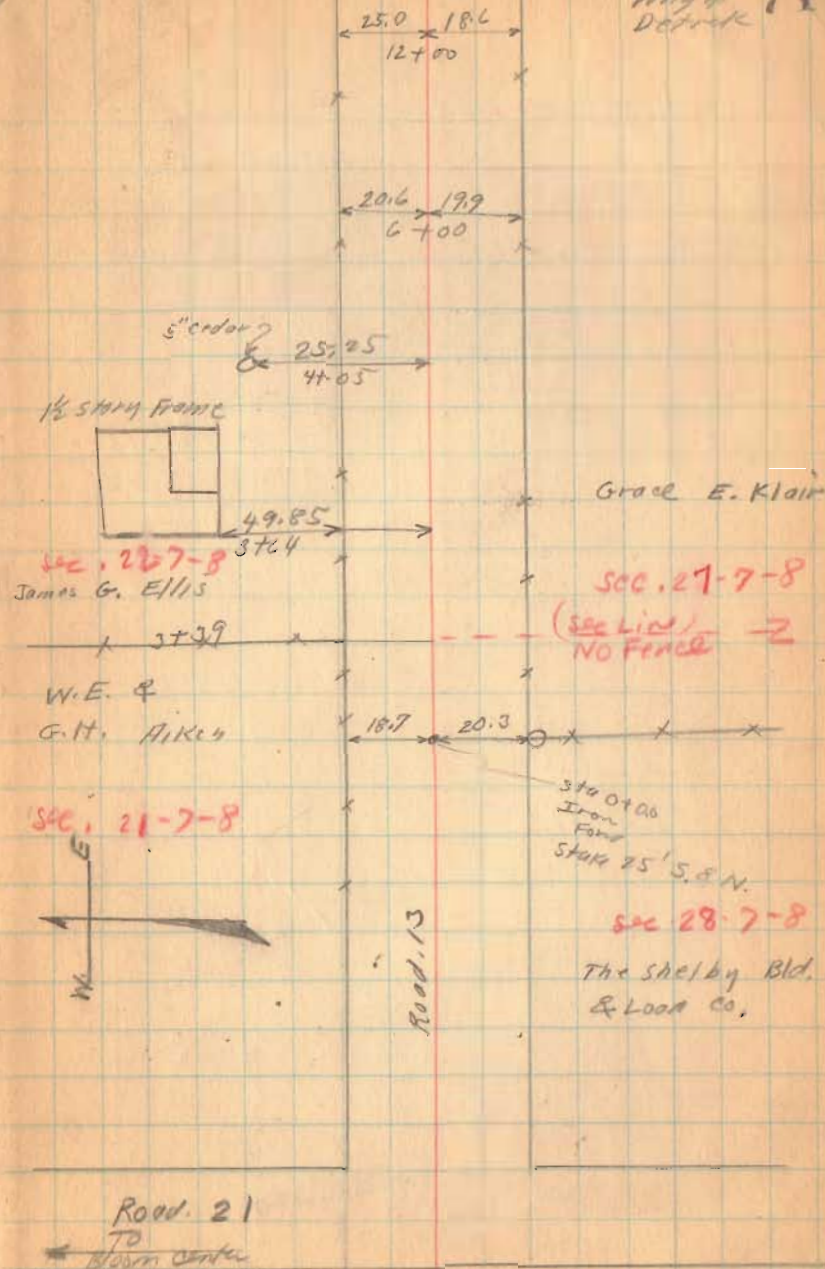 Detrick
25.0 18.6
12+00
20.6 19.9
6+00
5" cedar
25.25
4+05
1½ Story Frame
Grace E. Klair
49.85
3+64
sec. 22-7-8
James G. Ellis
sec. 27-7-8
3+39
(sec Line)
No Fence
W.E. &
G.H. Aiken
18.7 20.3
sta 0+00
Iron
Stake 25' S. & N.
sec. 21-7-8
E
W
sec 28-7-8
Road. 13
The Shelby Bld.
& Loan Co.
Road. 21
To
Bloom Center